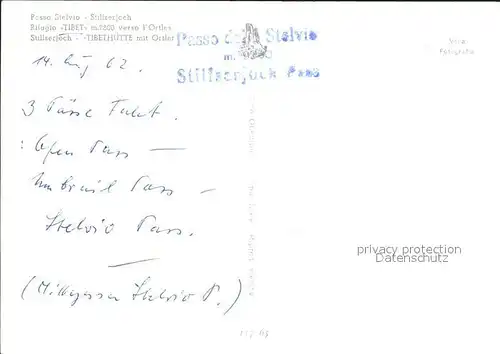 Passo Stelvio - Stilfserjoch
Rifugio «TIBET» m. 2800 verso l'Ortles
Stilfserjoch - «TIBETHÜTTE mit Ortler
Passo dello Stelvio
Stilfserjoch Pass
Vera
Fotografia
14. Aug 62.
3 Pässe Fahrt.
: Ofen Pass —
Umbrail Pass —
Stelvio Pass.
—
(Mittagessen Stelvio P.)
privacy protection
Datenschutz